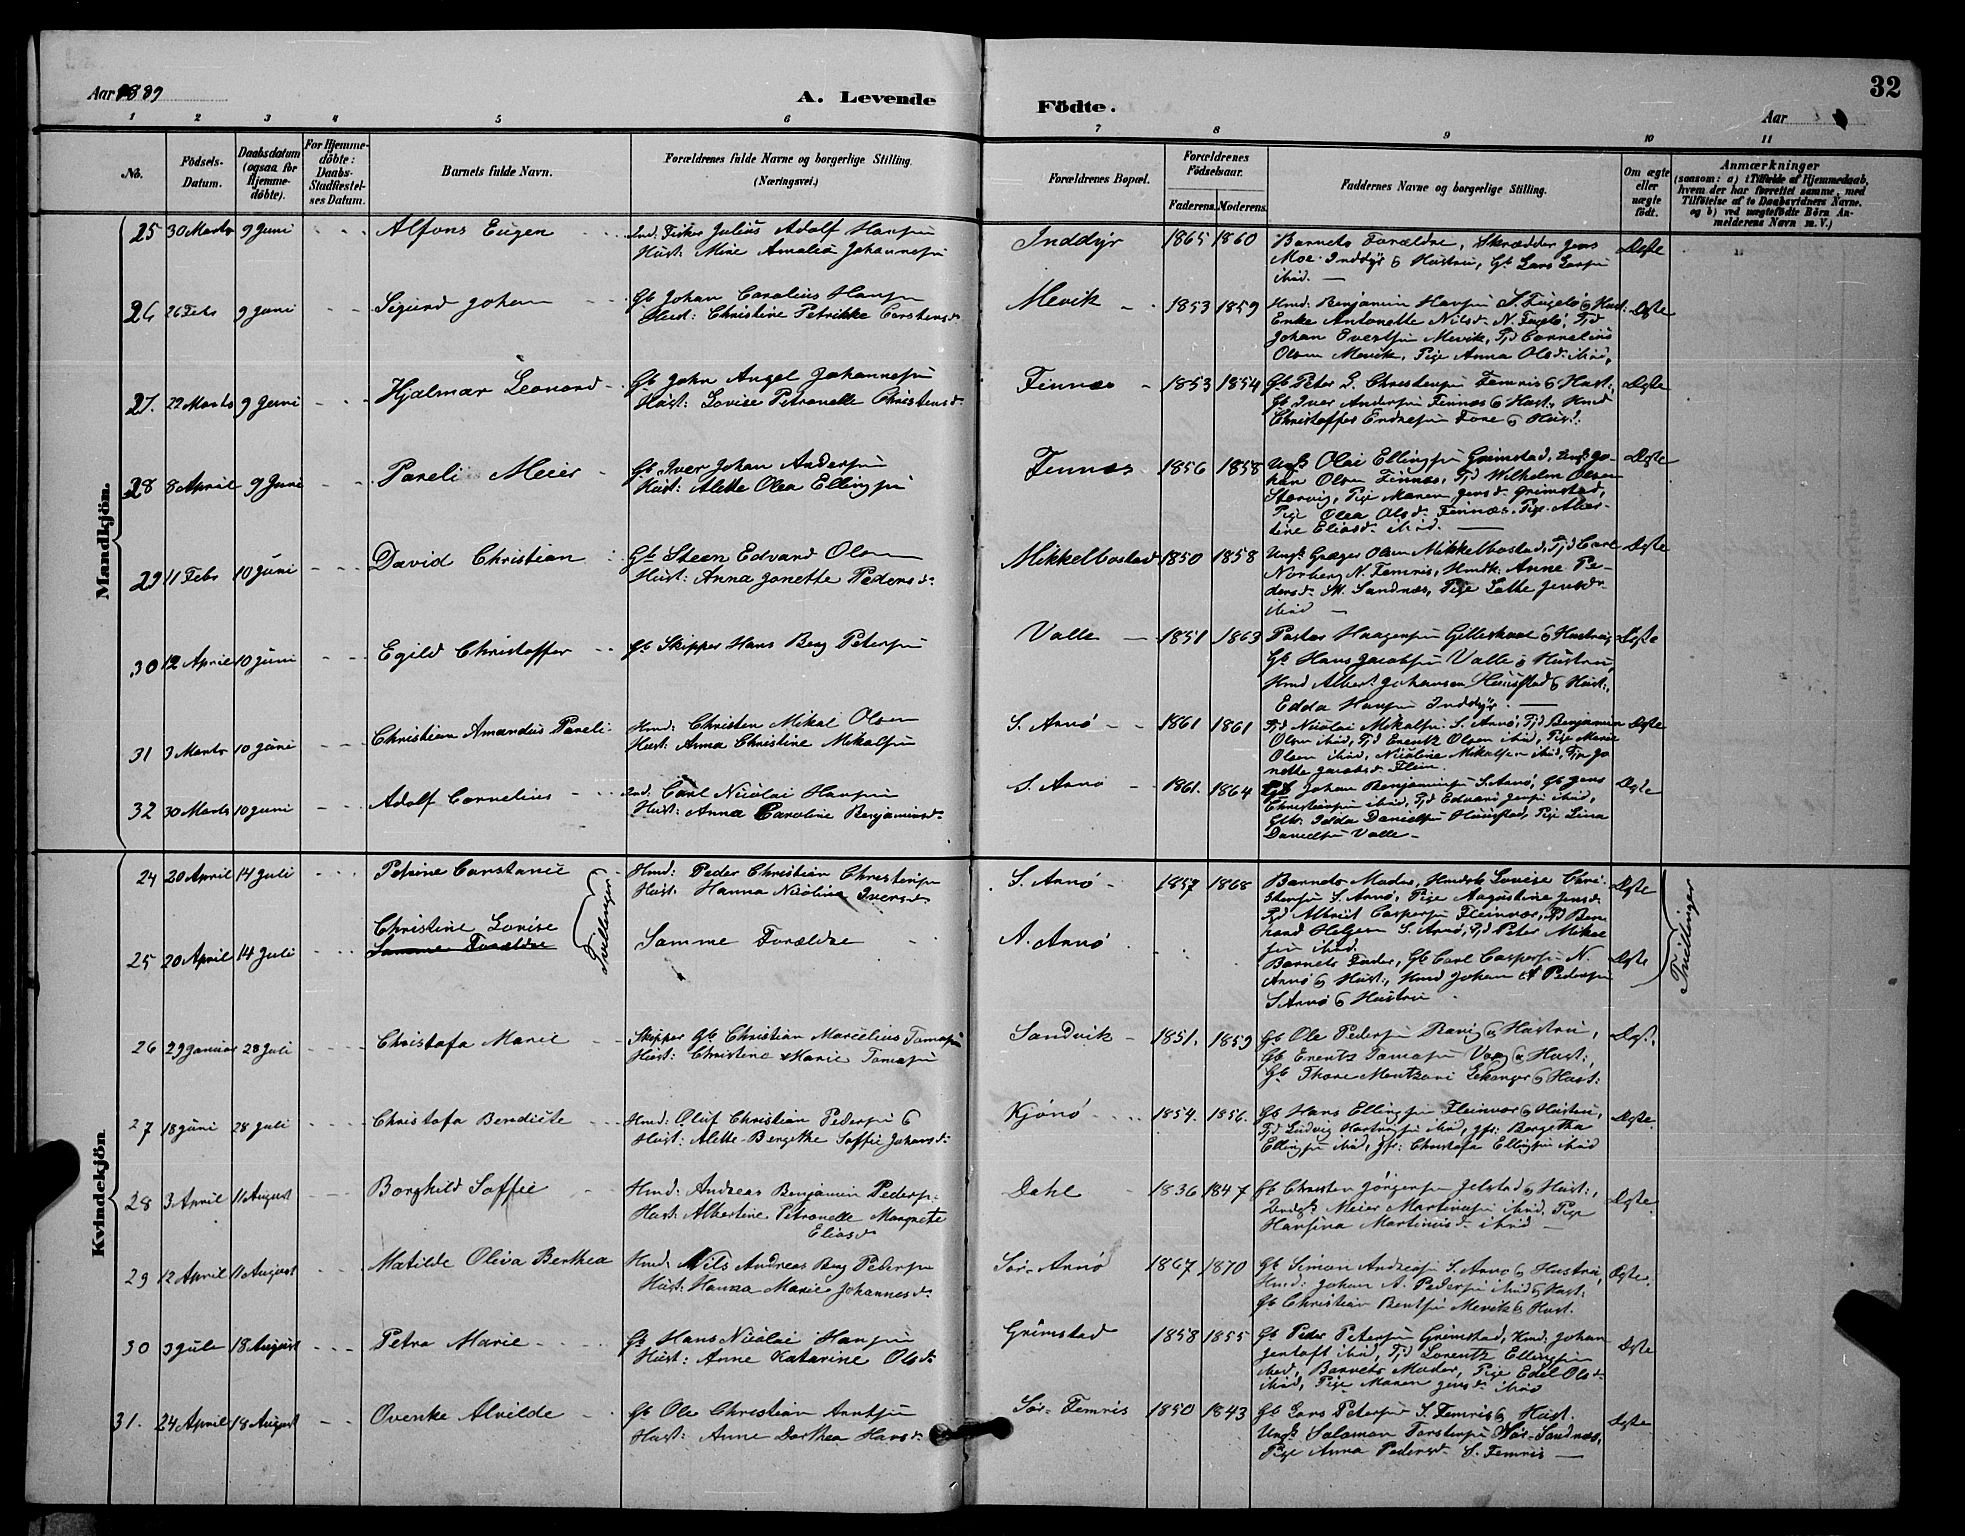 Aar 1889
A. Levende
Födte.
32
Aar
1
2
3
4
5
6
7
8
9
10
11
No.
Födsels-
Datum.
Daabsdatum
(ogsaa for
Hjemme-
döbte).
For Hjemme-
döbte:
Daabs-
Stadfæstel-
ses Datum.
Barnets fulde Navn.
Forældrenes fulde Navne og borgerlige Stilling.
(Næringsvei.)
Forældrenes Bopæl.
Forældrenes
Födselsaar.
Faderens.
Moderens.
Faddernes Navne og borgerlige Stilling.
Om ægte
eller
uægte
födt.
Anmærkninger
(saasom: a) i Tilfælde af Hjemmedaab,
hvem der har forrettet samme, med
Tilföielse af to Daabsvidners Navne.
og b) ved uægtefödte Börn An-
melderens Navn m. V.)
Mandkjön.
25 30 Marts 9 Juni Alfons Eugen
Ind. Fisker Julius Adolf Hansen
Hust: Mine Amalia Johannesen
Inddyr 1865 1860
Barnets Forældre, Skrædder Jens
Moe Inddyr & Hustru, Gb Lars Larsen
ibid. Ægte
26 26 Feb 9 Juni Sigurd Johan
Gb Johan Carolius Hansen
Hust: Christine Petrikke Carstensd.
Mevik 1853 1859
Hmd: Benjamin Hansen S. Fugelö & Hust:
Enke Antonette Nilsd. N. Fugelö, Tjd
Johan Evertsen Mevik, Tjd Cornelius
Olsen Mevik, Pige Anna Olsd. ibid, Ægte
27. 22 Marts 9 Juni Hjalmar Leonard
Gb John Angel Johannesen
Hust: Lovise Petronelle Christensd.
Finnæs 1853 1854
Gb Peter L. Christensen Femris & Hust:,
Gb Iver Andersen Finnæs & Hust:, Hmd
Christoffer Endresen Fore & Hust. Ægte
28 8 April 9 Juni Pareli Meier
Gb Iver Johan Andersen
Hust: Alette Olea Ellingsen
Finnæs 1856 1858
Ungk Olai Ellingsen Grimstad, Ungk Jo-
han Olsen Finnæs, Tjd Wilhelm Olsen
Storvig, Pige Maren Jensd. Grimstad,
Pige Olea Olsd. Finnæs, Pige Alber-
tine Eliasd. ibid. Ægte
29 11 Febr 10 Juni David Christian
Gb Steen Edvard Olsen
Hust: Anna Jonette Pedersd.
Mikkelbostad 1850 1858
Ungk Græger Olsen Mikkelbostad, Tjd Carl
Norberg N. Femris, Hmdk: Anne Pe-
dersd. M. Sandnæs, Pige Lathe Jensd.
ibid Ægte
30 12 April 10 Juni Egild Christoffer
Gb Skipper Hans Berg Petersen
Valle 1851 1863
Pastor Haagensen Gilleskaal & Hustru,
Gb Hans Jacobsen Valle & Hustru,
Hmd Albert Johansen Hüustad & Hust:,
Edda Hansen Inddyr. Ægte
31 3 Marts 10 Juni Christian Amandus Pareli
Hmd: Christen Mikal Olsen
Hust: Anna Christine Mikalsen
S. Arnö 1861 1861
Tjd Nicolai Mikalsen S. Arnö, Tjd Benjamin
Olsen ibid, Tjd Erentz Olsen ibid, Pige Marie
Olsen ibid, Nicoline Mikalsen ibid, Pige Jo-
nette Jacobsd. Flein. Ægte
32 30 Marts 10 Juni Adolf Cornelius
Ind. Carl Nicolai Hansen
Hust: Anna Caroline Benjaminsd.
S. Arnö 1861. 1864
Gb Johan Benjaminsen S. Arnö, Gb Jens
Christiansen ibid, Tjd Edvard Jensen ibid,
Gbk. Edda Danielsen Hüustad, Pige Lina
Danielsen Valle Ægte
Kvindekjön
24 20 April 14 Juli Petrine Constance
Hmd: Peder Christian Christensen
Hust. Hanna Nicoline Iversd.
S. Arnö 1857 1868
Barnets Moder, Hmdsk Lovise Chri-
stensen S. Arnö, Pige Augustine Jensd.
Tjd Albrikt Caspersen Fleinvær, Tjd Bern-
hard Helgesen S. Arnö, Tjd Peter Mikal-
sen ibid. Ægte
25 20 April 14 Juli Christine Lovise
Samme Forældre
Tvillinger
Samme Forældre
N. Arnö
Barnets Fader, Gb Carl Caspersen N.
Arnö & Hust:, Hmd Johan A Pedersen
S. Arnö & Hustru Ægte
Tvillinger
26 29 Januar 28 Juli Christofa Marie
Skipper Gb Christian Marcelius Tomasen
Hust: Christine Marie Tomasen
Sandvik 1851. 1859
Gb Ole Pedersen Ravig & Hustru,
Gb Erentz Tomasen Vaag & Hust:,
Gb Thore Mentzoni Lekanger & Hust: Ægt.
27 18 Juni 28 Juli Christofa Bendicte
Hmd: Oluf Christian Pedersen &
Hust: Alette Bergethe Soffie Johansd.
Kjönö 1854. 1856.
Gb Hans Ellingsen Fleinvær & Hustru,
Tjd Ludvig Hartvigsen ibid, Jfr: Bergetha
Ellingsen ibid, Jfr: Christofa Ellingsen ibid Ægte
28 3 April 11 August Borghild Soffie
Hmd: Andreas Benjamin Pedersen
Hust: Albertine Petronelle Margrete
Eliasd.
Dahl 1836 1847
Gb Christen Jörgensen Jelstad & Hust:,
Ungk Meier Martinusen ibid, Pige
Hansina Martinusd. ibid Ægte
29 12 April 11 August Matilde Oliva Berthea
Hmd: Nils Andreas Berg Pedersen
Hust: Hanna Marie Johannesd.
Sör-Arnö 1867 1870
Gb Simon Andreasen S. Arnö & Hustru,
Hmd: Johan A. Pedersen ibid & Hust:
Gb Christian Bentsen Mevik & Hust. Ægte.
30 3 Juli 18 August Petra Marie
Gb Hans Nicolai Hansen
Hust: Anne Katarine Olsd.
Grimstad 1858 1855
Gb Peder Petersen Grimstad, Hmd: Johan
Jentoft ibid, Tjd Lorentz Ellingsen
ibid, Barnets Moder, Pige Edel Olsd.
ibid, Pige Maren Jensd. ibid Ægte
31. 24 April 18 August Ovenke Alvilde
Gb Ole Christian Arntsen
Hust: Anne Dorthea Hansd.
Sör-Femris 1850 1843
Gb Lars Petersen S. Femris & Hust.
Ungk Salamon Torstensen Sör-Sandnæs,
Pige Anna Pedersd. S. Femris Ægte